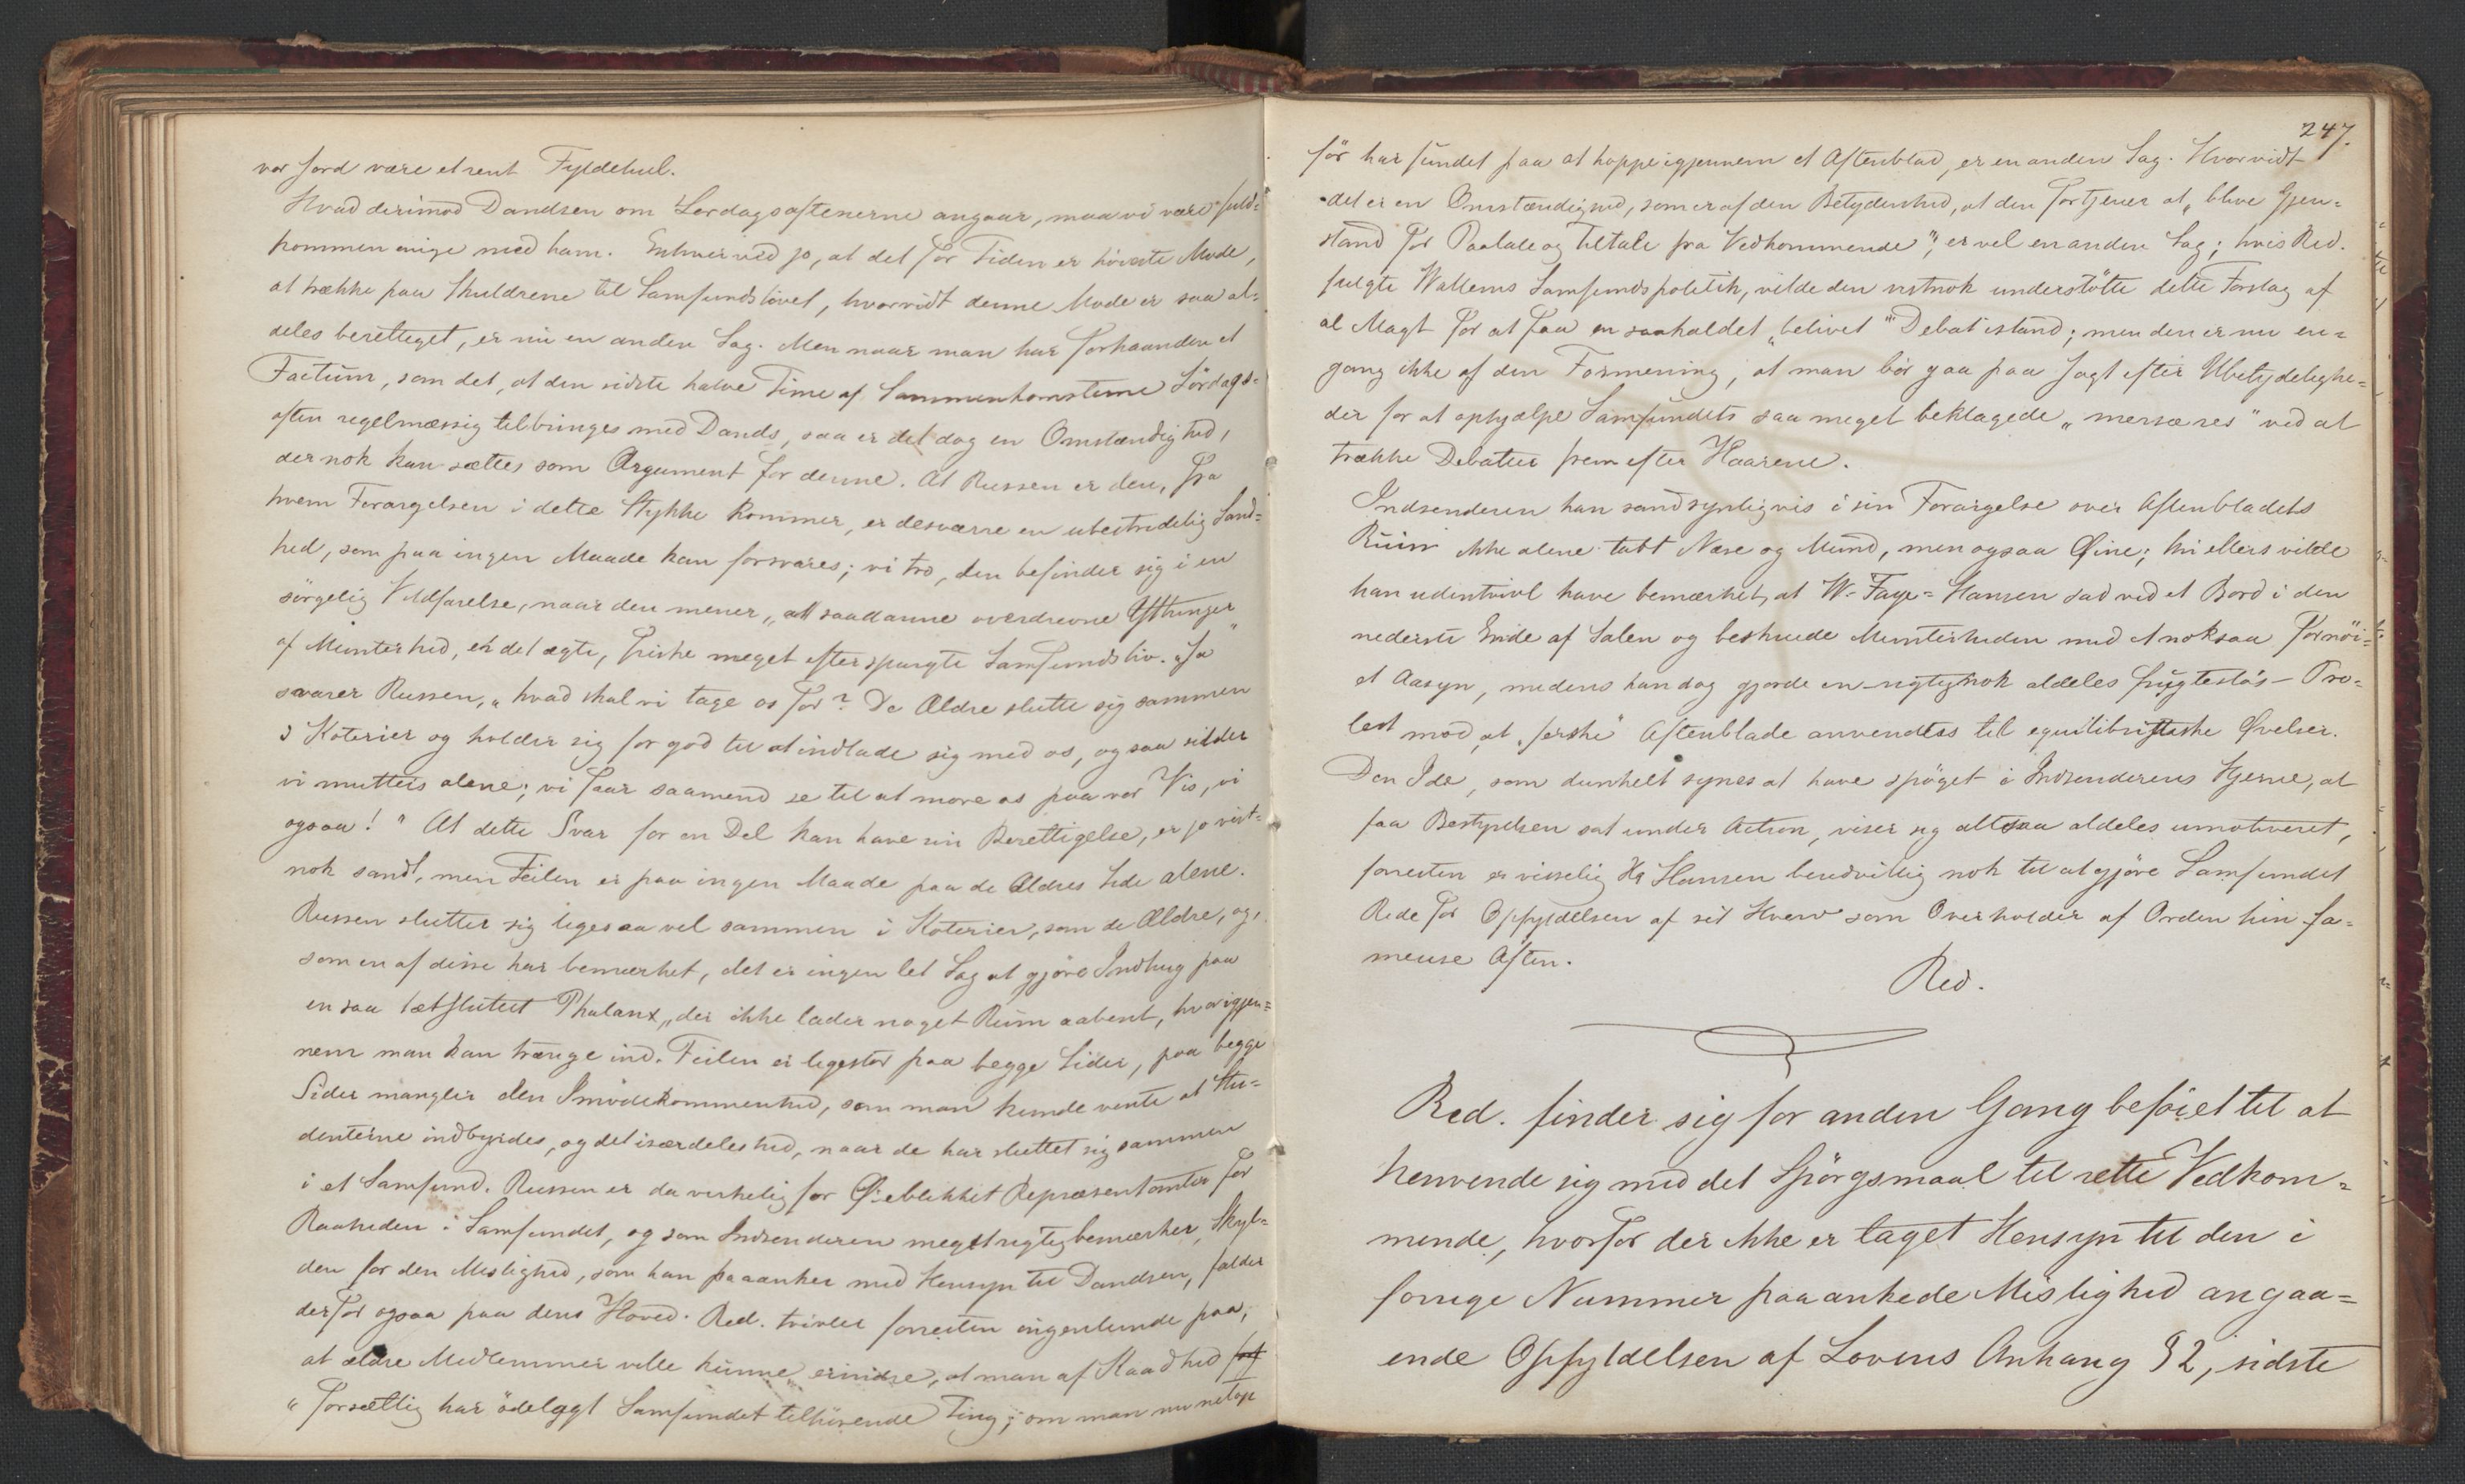 vor Jord være et rent Fyldehul.
Hvad derimod Dandsen om Lørdagsaftenerne angaar, maa vi være fuld=
kommen enige med ham. Enhver ved jo, at det for Tiden er høieste Mode,
at trække paa Skuldrene til Samfundslivet, hvorvidt denne Mode er saa al=
deles berettiget, er nu en anden Sag. Men naar man har forhaanden et
Factum, som det, at den sidste halve Time af Sammenkomsterne Lördags=
aften regelmæssig tilbringes med Dands, saa er det dog en Omstændighed,
der nok kan sættes som Argument for denne. At Russen er den, fra
hvem Forargelsen i dette Stykke kommer, er desværre en ubestridelig Sand=
hed, som paa ingen Maade kan forsvares; vi tro, den befinder sig i en
sörgelig Vildfarelse, naar den mener, „at saadanne overdrevne Yttringer
af Munterhed, er det ægte, friske meget efterspurgte Samfundsliv." „Ja
svarer Russen, „hvad skal vi tage os for? De Ældre slutte sig sammen
i Koterier og holder sig for god til at indlade sig med os, og saa sidder
vi mutters alene; vi faar saamend se til at more os paa vor Vis, vi
ogsaa!" At dette Svar for en Del kan have sin Berettigelse, er jo vist=
nok sandt, men Feilen er paa ingen Maade paa de Ældres Side alene.
Russen slutter sig ligesaa vel sammen i Koterier, som de Ældre, og,
som en af disse har bemærket, det er ingen let Sag at gjöre Indhug paa
en saa tætsluttet Phalanx, der ikke lader noget Rum aabent, hvorigjen=
nem man kan trænge ind. Feilen er ligestor paa begge Sider, paa begge
Sider mangler den Imödekommenhed, som man kunde vente at Stu=
denterne indbyrdes, og det isærdeleshed, naar de har sluttet sig sammen
i et Samfund. Russen er da virkelig for Øieblikket Repræsentanter for
Raaheden i Samfundet, og som Indsenderen meget rigtig bemærker, Skyl=
den for den Mislighed, som han paaanker med Hensyn til Dandsen, falder
derfor ogsaa paa dens Hoved. Red. tvivler forresten ingenlunde paa,
at ældre Medlemmer ville kunne erindre, at man af Kaadhed
" forsætlig har ödelagt Samfundet tilhörende Ting; om man nu netop
247.
för har fundet paa at hoppe igjennem et Aftenblad, er en anden Sag. Hvorvidt
det er en Omstændighed, som er af den Betydenhed, at den fortjener at „blive Gjen=
stand for Paatale og Tiltale fra Vedkommende", er vel en anden Sag; hvis Red.
fulgte Wallems Samfundspolitik, vilde den vistnok understötte dette Forslag af
al Magt for at faa en saakaldet „belivet" Debat istand; men den er nu en=
gang ikke af den Formening, at man bör gaa paa Jagt efter Ubetydelighe=
der for at ophjælpe Samfundets saa meget beklagede „mersæres" ved at
trække Debatter frem efter Haarene.
Indsenderen har sandsynligvis i sin Forargelse over Aftenbladets
Ruin ikke alene tabt Næse og Mund, men ogsaa Øine; thi ellers vilde
han udentvivl have bemærket, at W. Faye=Hansen sad ved et Bord i den
nederste Ende af Salen og beskuede Munterheden med et noksaa fornöi=
et Aasyn, medens han dog gjorde en – rigtignok aldeles frugteslös – Pro=
test mod, at „ferske" Aftenblade anvendtes til equilibristiske Øvelser.
Den Ide, som dunkelt synes at have spöget i Indsenderens Hjerne, at
faa Bestyrelsen sat under Action, viser sig altsaa aldeles umotiveret,
forresten er visselig Hr Hansen beredvillig nok til at gjöre Samfundet
Rede for Opfyldelsen af sit Hverv som Overholder af Orden hin fa=
meuse Aften.
Red.
Red. finder sig for anden Gang beföiet til at
henvende sig med det Spörgsmaal til rette Vedkom=
mende, hvorfor der ikke er taget Hensyn til den i
forrige Nummer paaankede Mislighed angaa=
ende Opfyldelsen af Lovens Anhang § 2, sidste